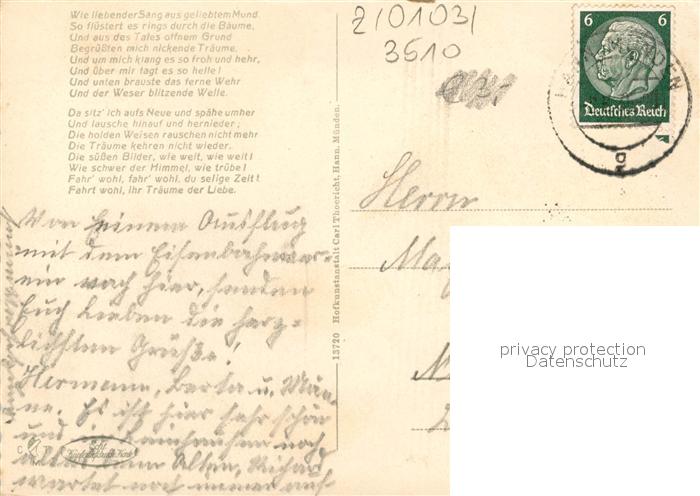 Wie liebender Sang aus geliebtem Mund
So flüstert es rings durch die Bäume,
Und aus des Tales offnem Grund
Begrüßten mich nickende Träume.
Und um mich klang es so froh und hehr,
Und über mir tagt es so helle!
Und unten brauste das ferne Wehr
Und der Weser blitzende Welle.
Da sitz' ich aufs Neue und spähe umher
Und lausche hinauf und hernieder;
Die holden Weisen rauschen nicht mehr
Die Träume kehren nicht wieder.
Die süßen Bilder, wie weit, wie weit!
Wie schwer der Himmel, wie trübe!
Fahr' wohl, fahr' wohl, du selige Zeit!
Fahrt wohl, Ihr Träume der Liebe.
Von einem Ausflug
mit dem Eisenbahnver-
ein nach hier, senden
Euch Lieben die herz-
lichsten Grüße!
Hermann, Berta u. Män-
ne. Es ist hier sehr schön
und in
noch
alten
wartet noch immer auf
C T
Echt
13720 Hofkunstanstalt Carl Thoericht, Hann. Münden.
2/0103/
3510
6 6
Deutsches Reich
Herrn
privacy protection
Datenschutz